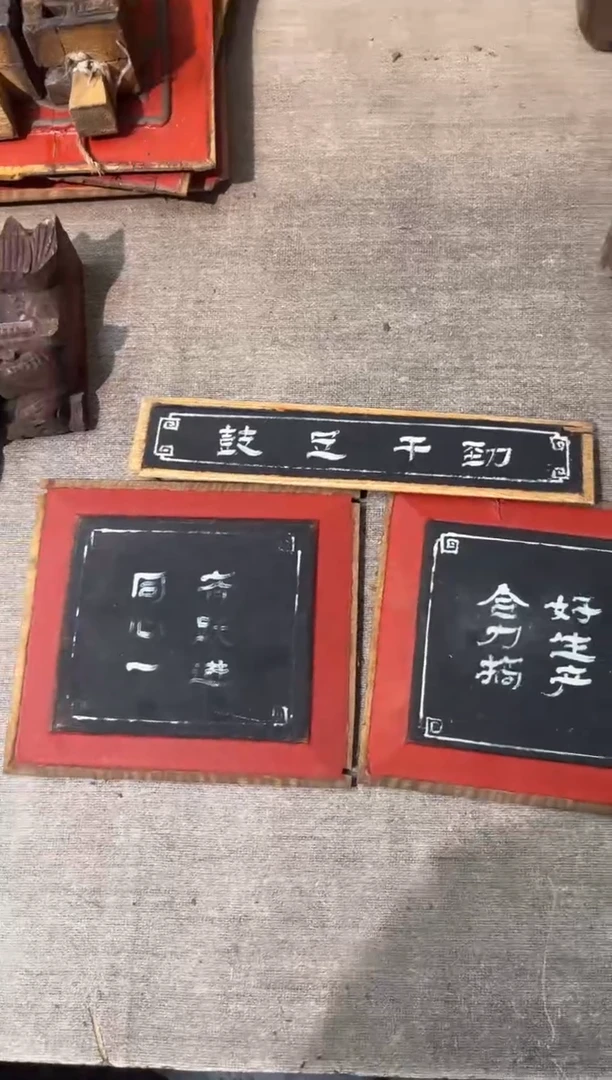 鼓足干劲
同心一
齐跃进
合力搞
好生产